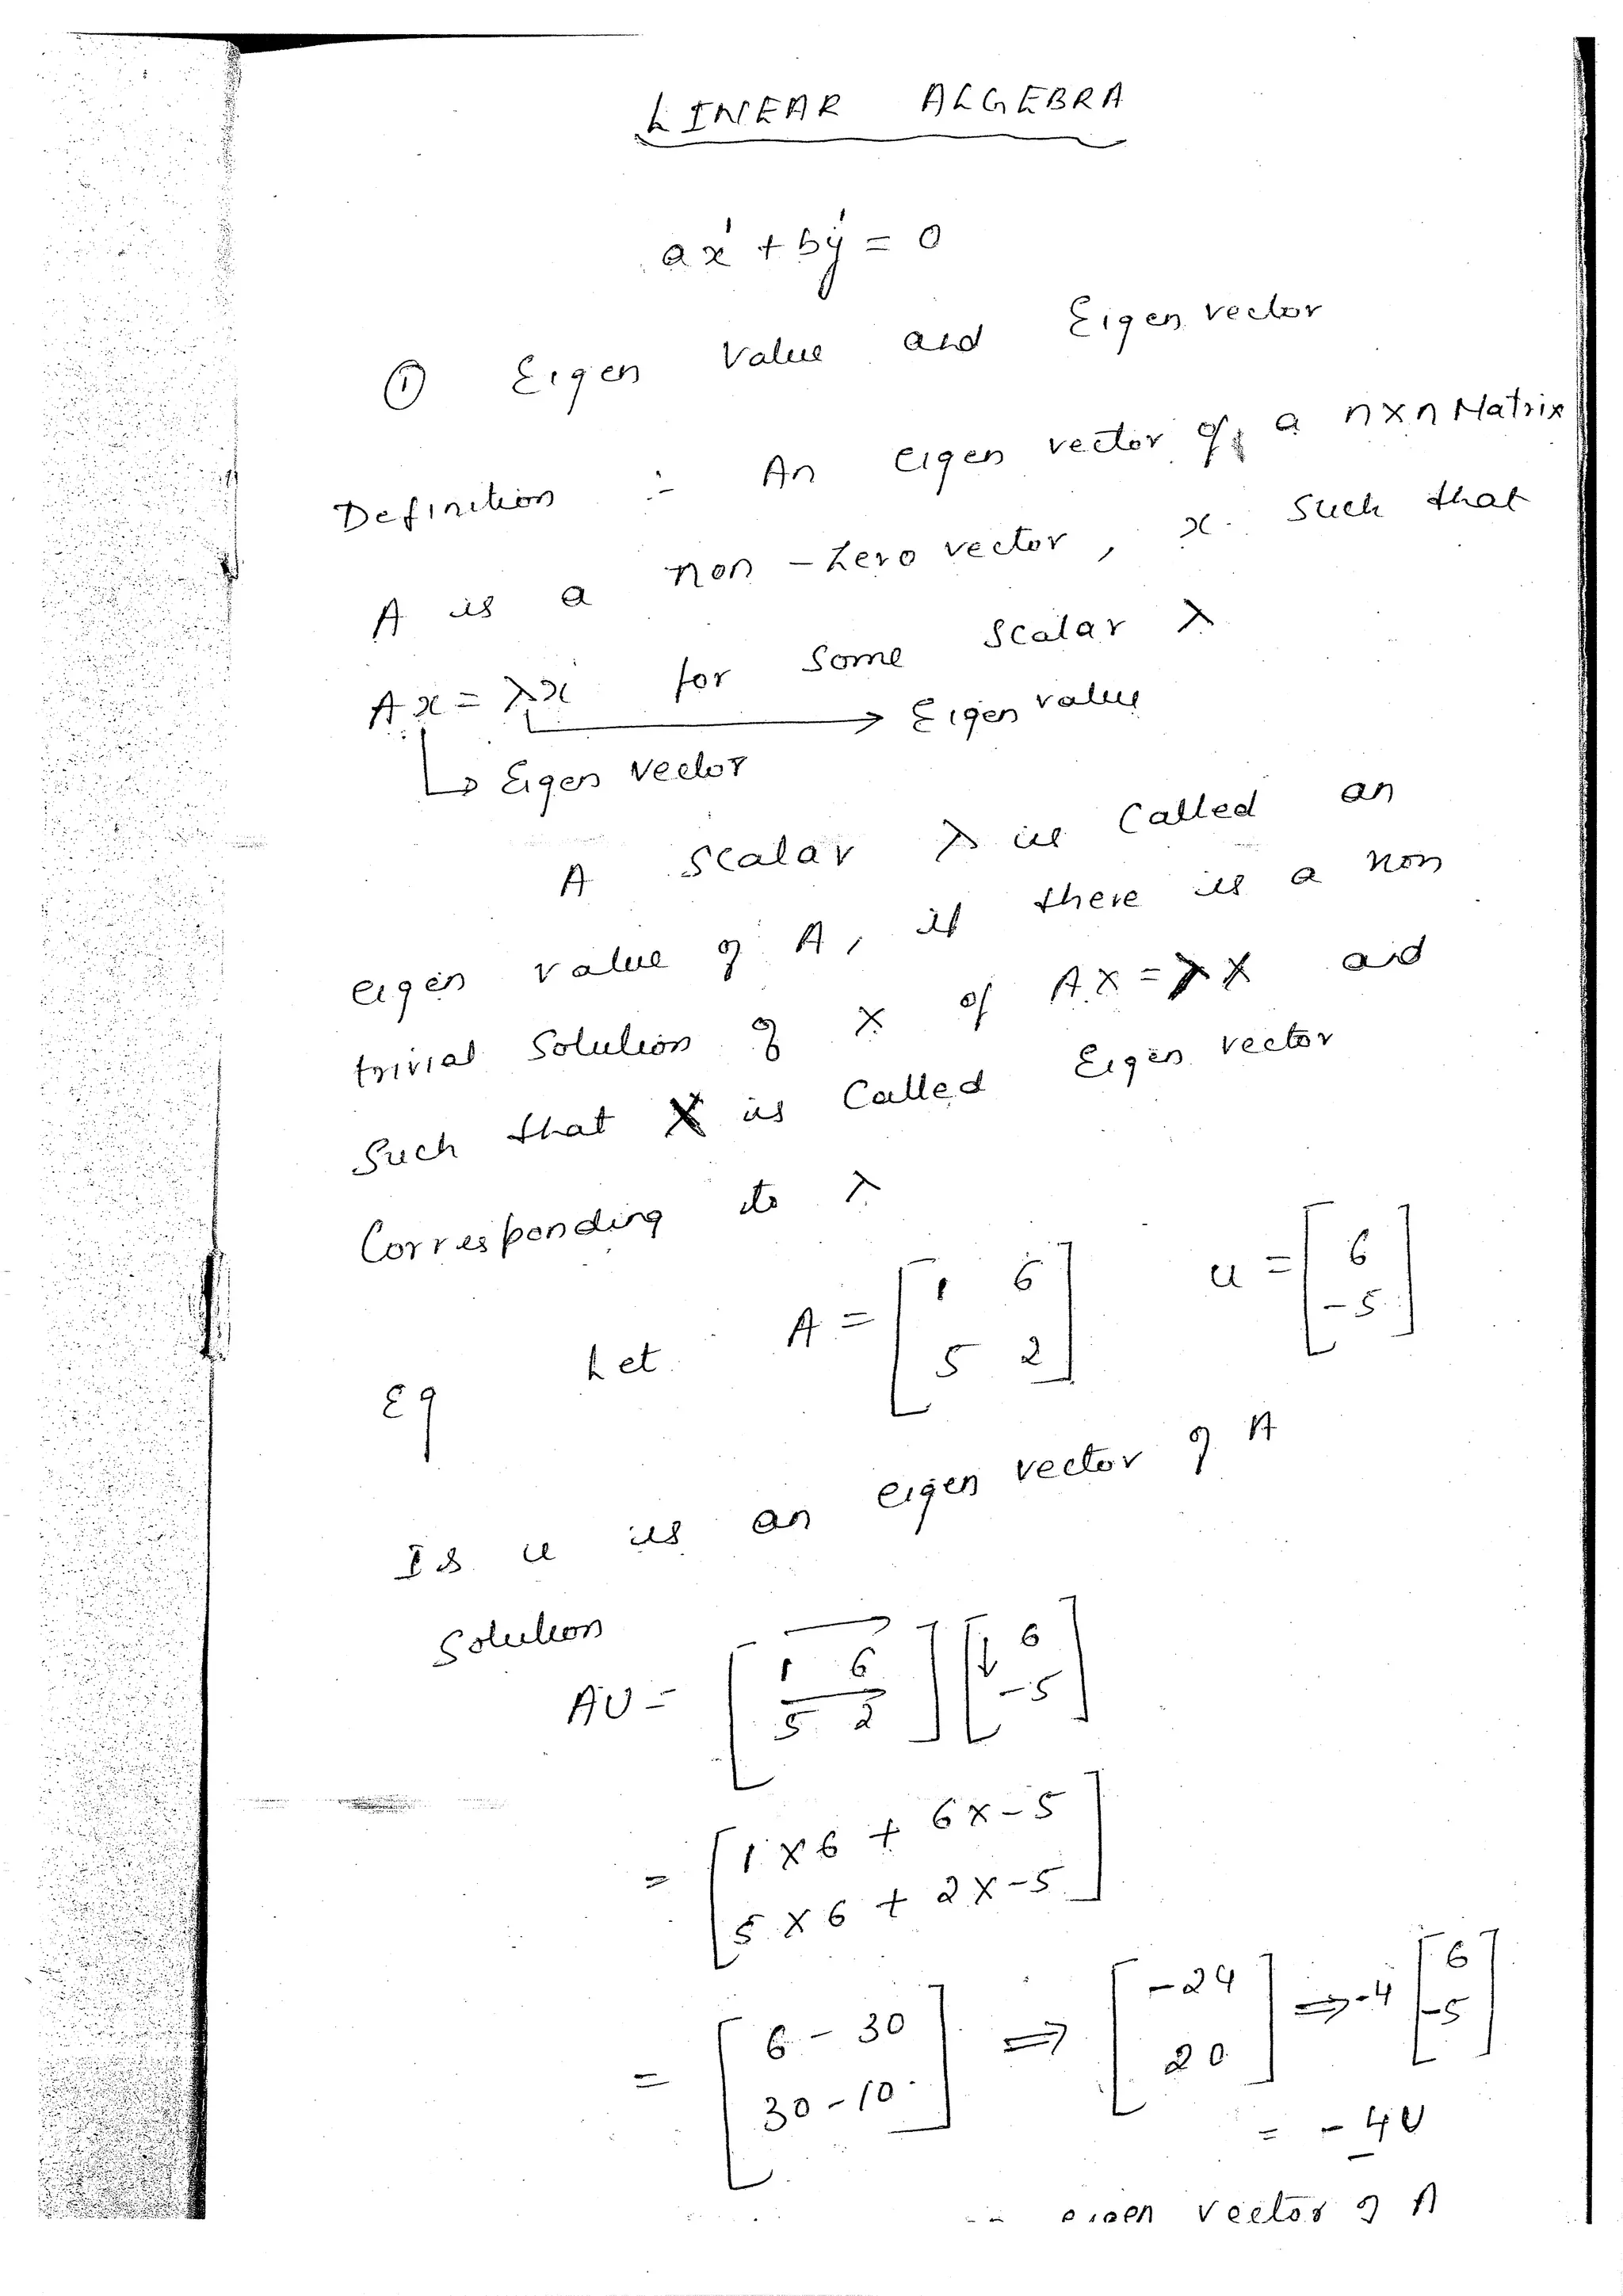 LINEAR ALGEBRA
ax' + by' = 0
① Eigen Value and Eigen vector
Definition :- An eigen vector of a n×n Matrix
A is a non-zero vector, x such that
Ax = λx for some scalar λ
→ Eigen value
↳ Eigen vector
A scalar λ is called an
eigen value of A, if there is a non
trivial solution of x of AX = λX and
Such that X is called Eigen vector
Corresponding to λ
Eg Let A = [1 6
5 2] u = [6
-5]
Is u is an eigen vector of A
Solution
AU = [1 6
5 2] [6
-5]
= [1×6 + 6×-5
5×6 + 2×-5]
= [6-30
30-10] ⇒ [-24
20] ⇒ -4 [6
-5]
= -4U
eigen vector of A